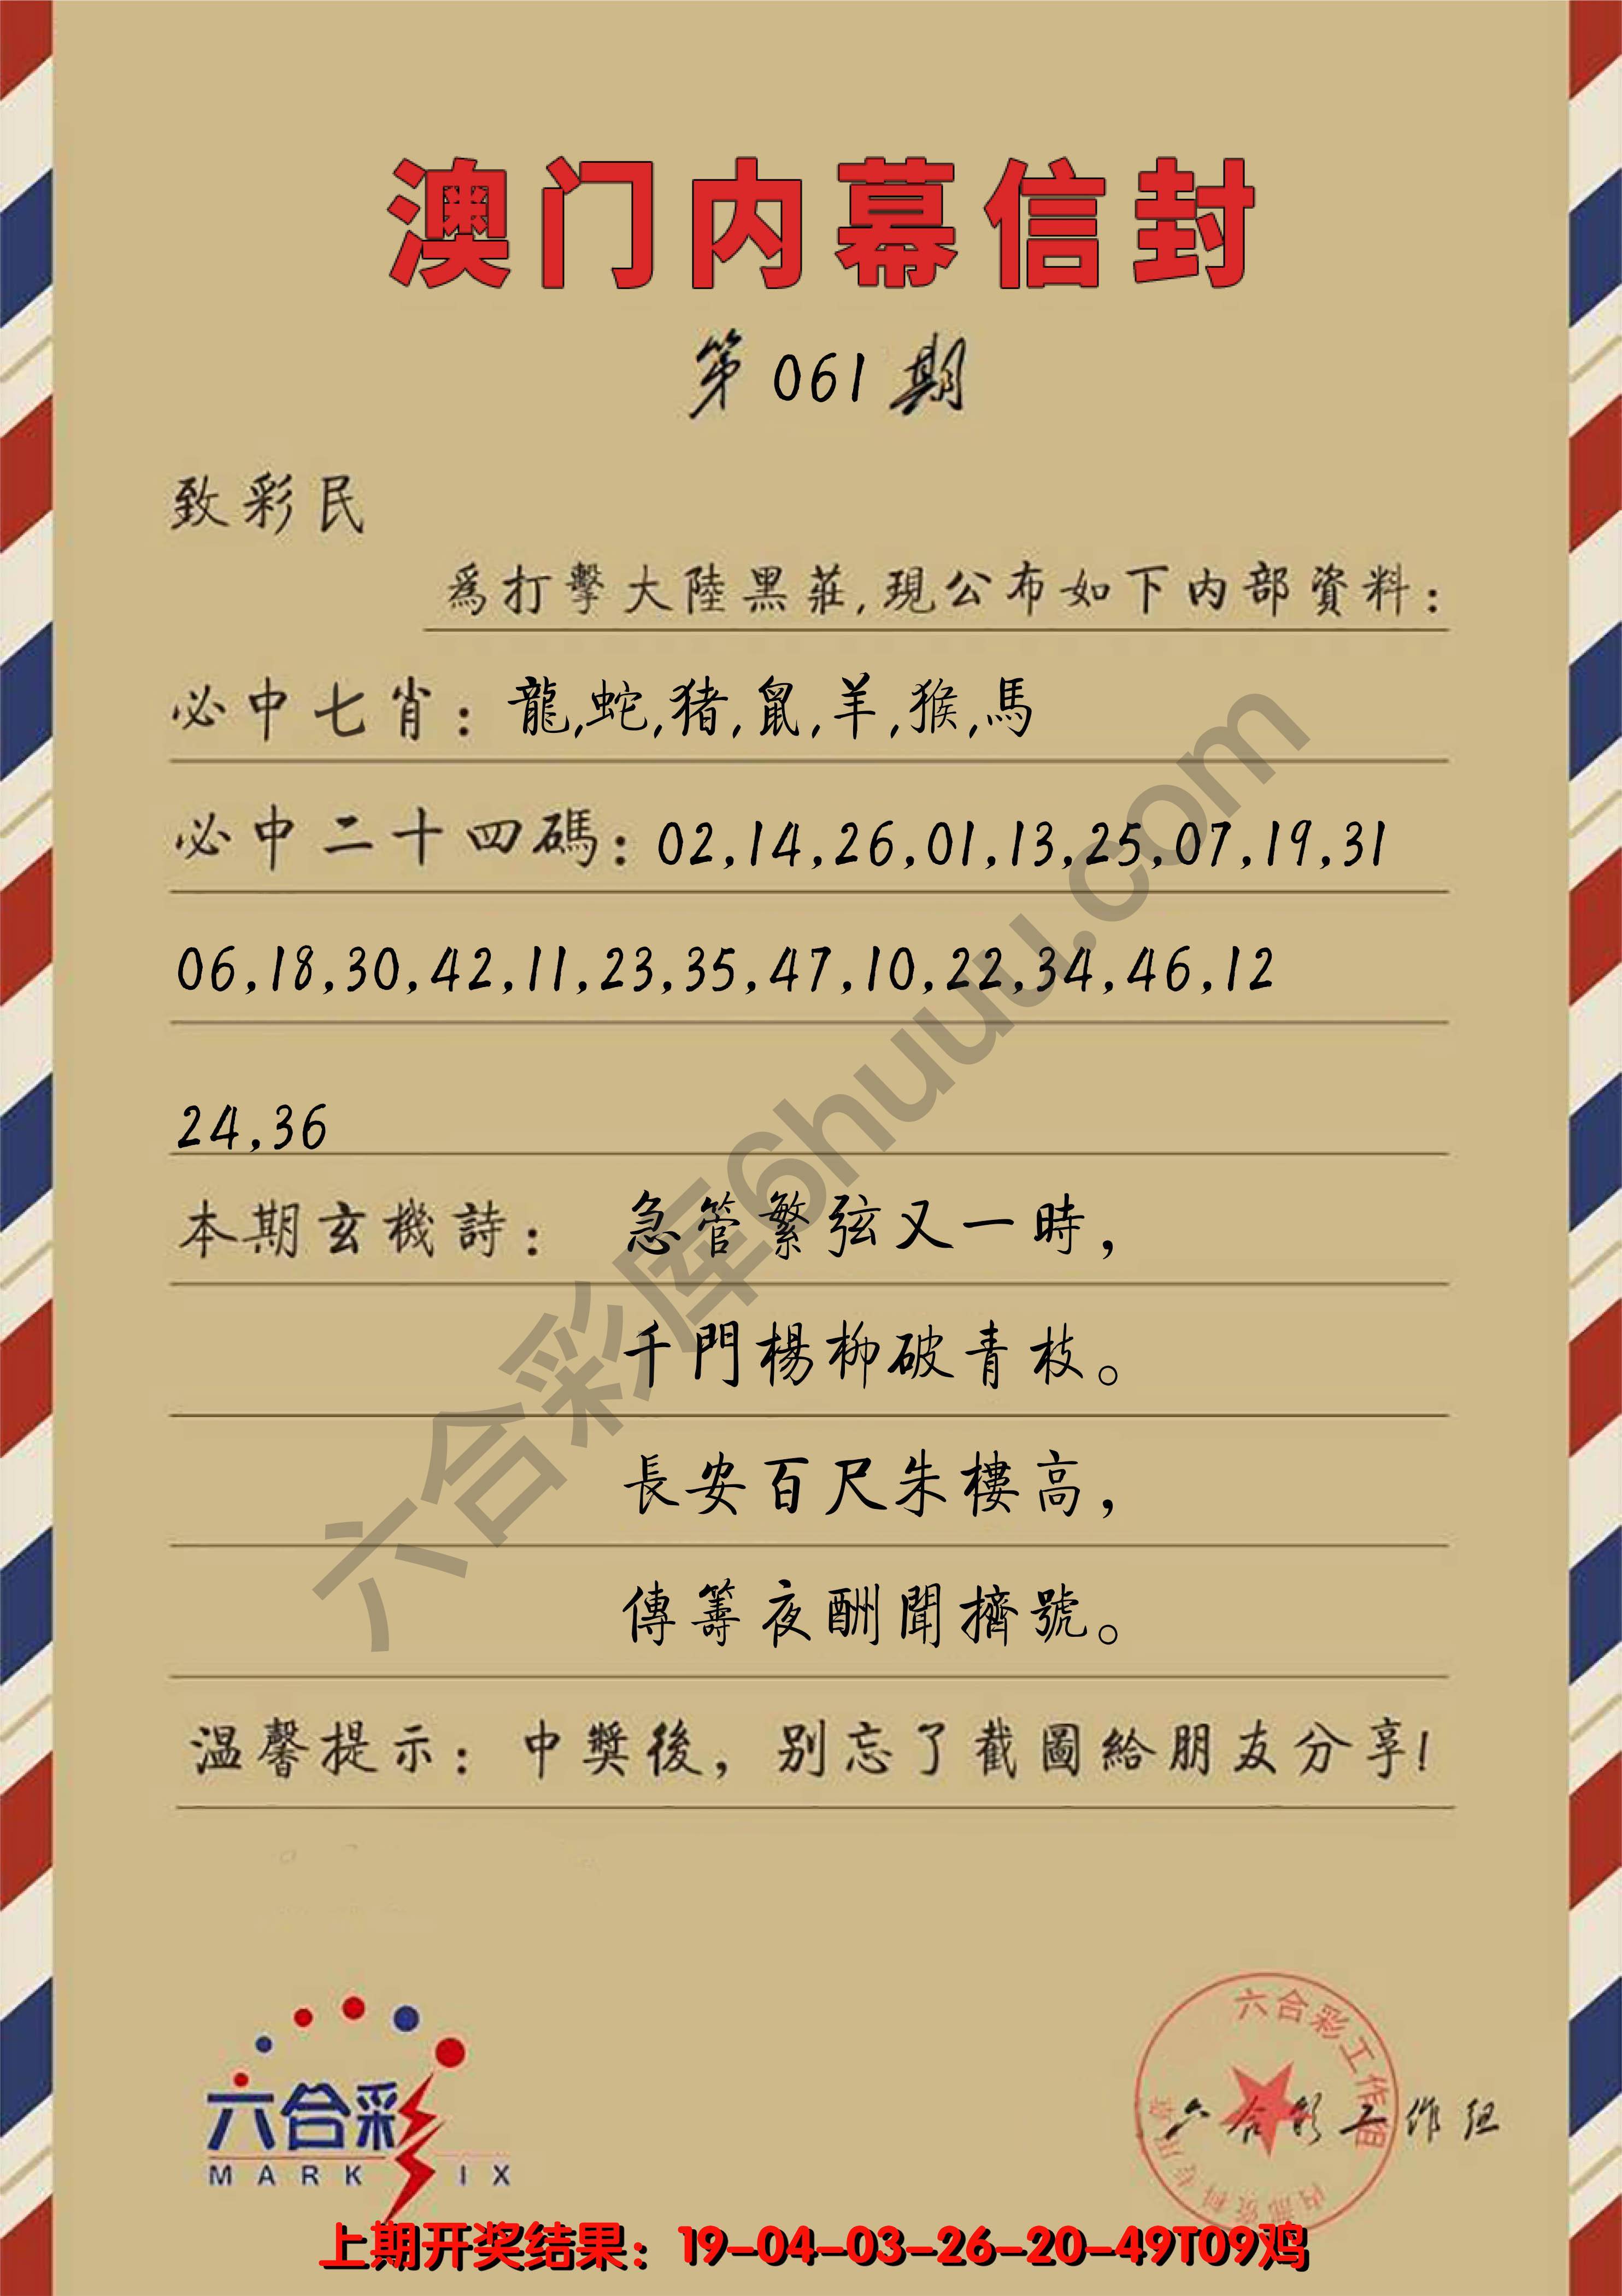 澳门内幕信封
第061期
致彩民
爲打擊大陸黑莊,現公布如下内部資料:
必中七肖:龍,蛇,猪,鼠,羊,猴,馬
必中二十四碼:02,14,26,01,13,25,07,19,31
06,18,30,42,11,23,35,47,10,22,34,46,12
24,36
本期玄機詩:急管繁弦又一時,
千門楊柳破青枝。
長安百尺朱樓高,
傳籌夜酬聞擠號。
温馨提示:中獎後,别忘了截圖給朋友分享!
六合彩库6huuu.com
六合彩
MARK IX
六合彩工作组
内部资料专用章
六合彩工作组
上期开奖结果:19-04-03-26-20-49T09鸡